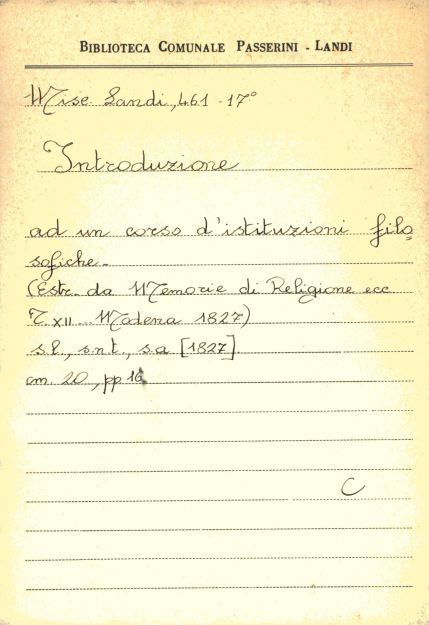 BIBLIOTECA COMUNALE PASSERINI - LANDI
Misc. Landi, 461 - 17°
Introduzione
ad un corso d'istituzioni filo=
sofiche -
(Estr. da Memorie di Religione ecc
T. XII - Modena 1827)
s.l., s.n.t., s.a [1827].
cm. 20, pp 16.
C